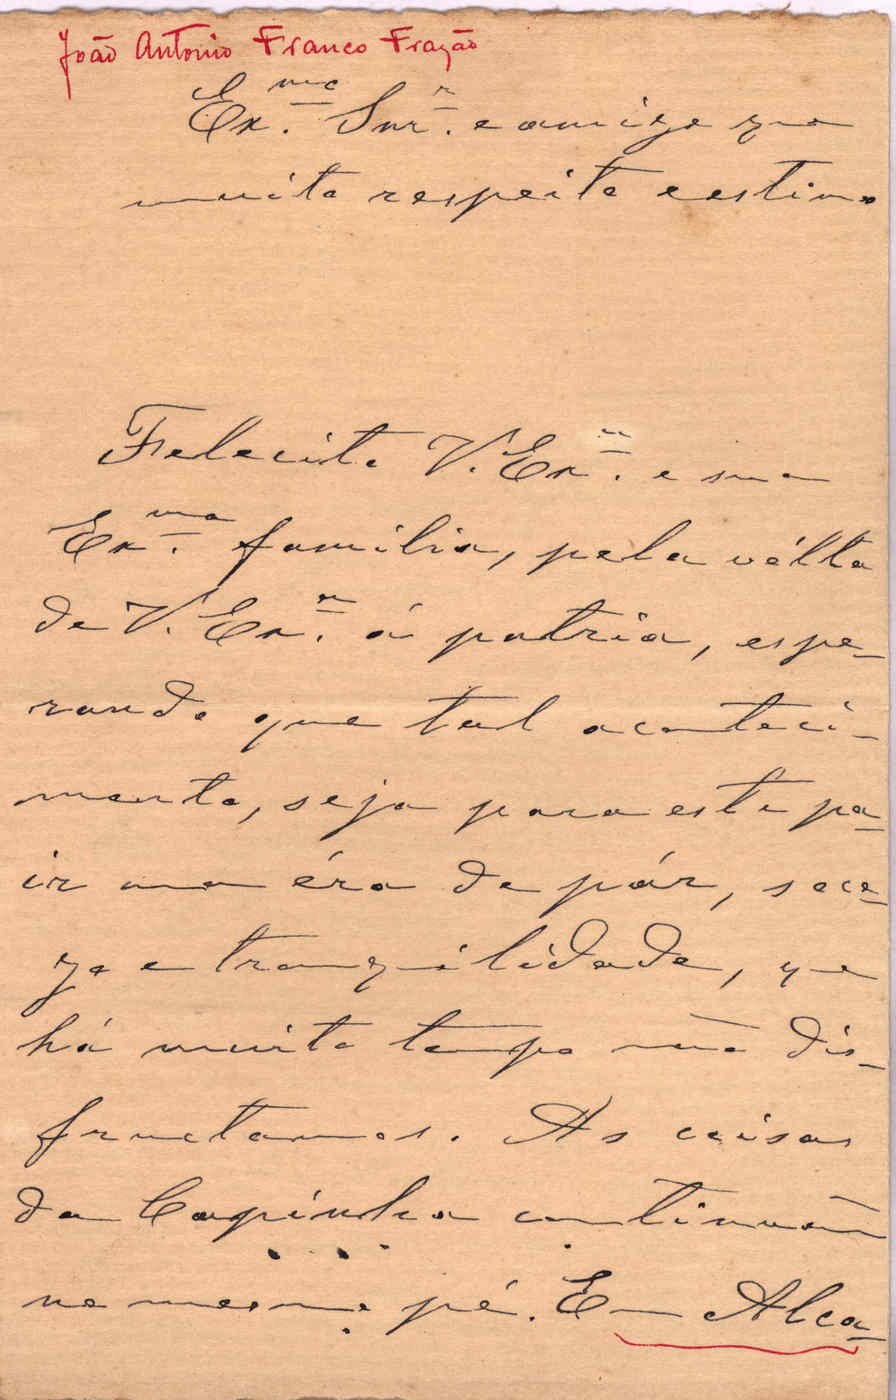 João Antonio Franco Frazão
Ex.mo Snr. e amigo que
muito respeito e estimo
Felecito V. Ex.a e sua
Ex.ma familia, pela vólta
de V. Ex.a á patria, espe-
rando que tal aconteci-
mento, seja para este pa-
iz uma éra de páz, soce-
go e tranquilidade, que
há muito tempo não dis-
fructamos. As coisas
da Capinha continuão
no mesmo pé. Em Alca-